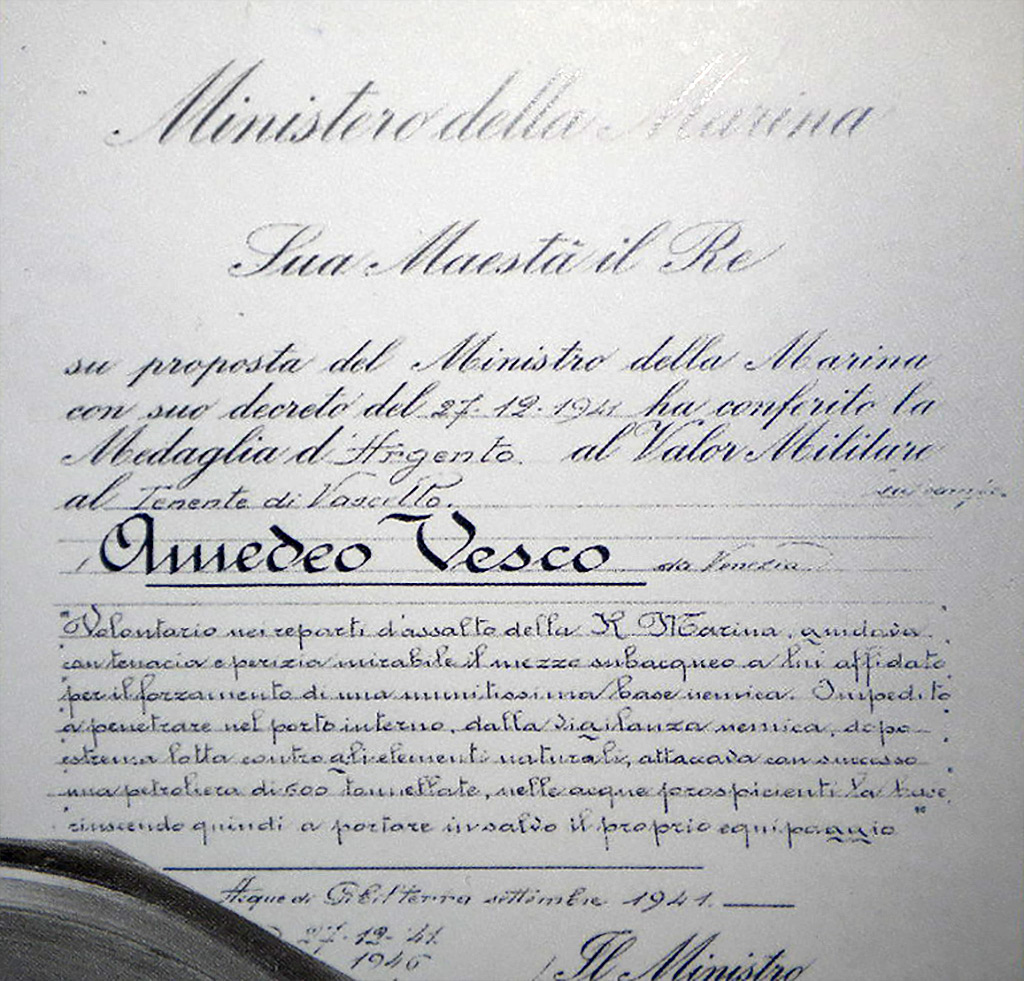 Ministero della Marina
Sua Maestà il Re
su proposta del Ministro della Marina
con suo decreto del 27-12-1941 ha conferito la
Medaglia d'Argento al Valor Militare
al Tenente di Vascello
Amedeo Vesco da Venezia
"Volontario nei reparti d'assalto della R. Marina, guidava
con tenacia e perizia mirabile il mezzo subacqueo a lui affidato
per il forzamento di una munitissima base nemica. Impedito
a penetrare nel porto interno, dalla vigilanza nemica, dopo
estrema lotta contro gli elementi naturali, attaccava con successo
una petroliera di 600 tonnellate, nelle acque prospicienti la base,
riuscendo quindi a portare in salvo il proprio equipaggio"
Acque di Gibilterra settembre 1941.
27-12-'41.
1946
Il Ministro